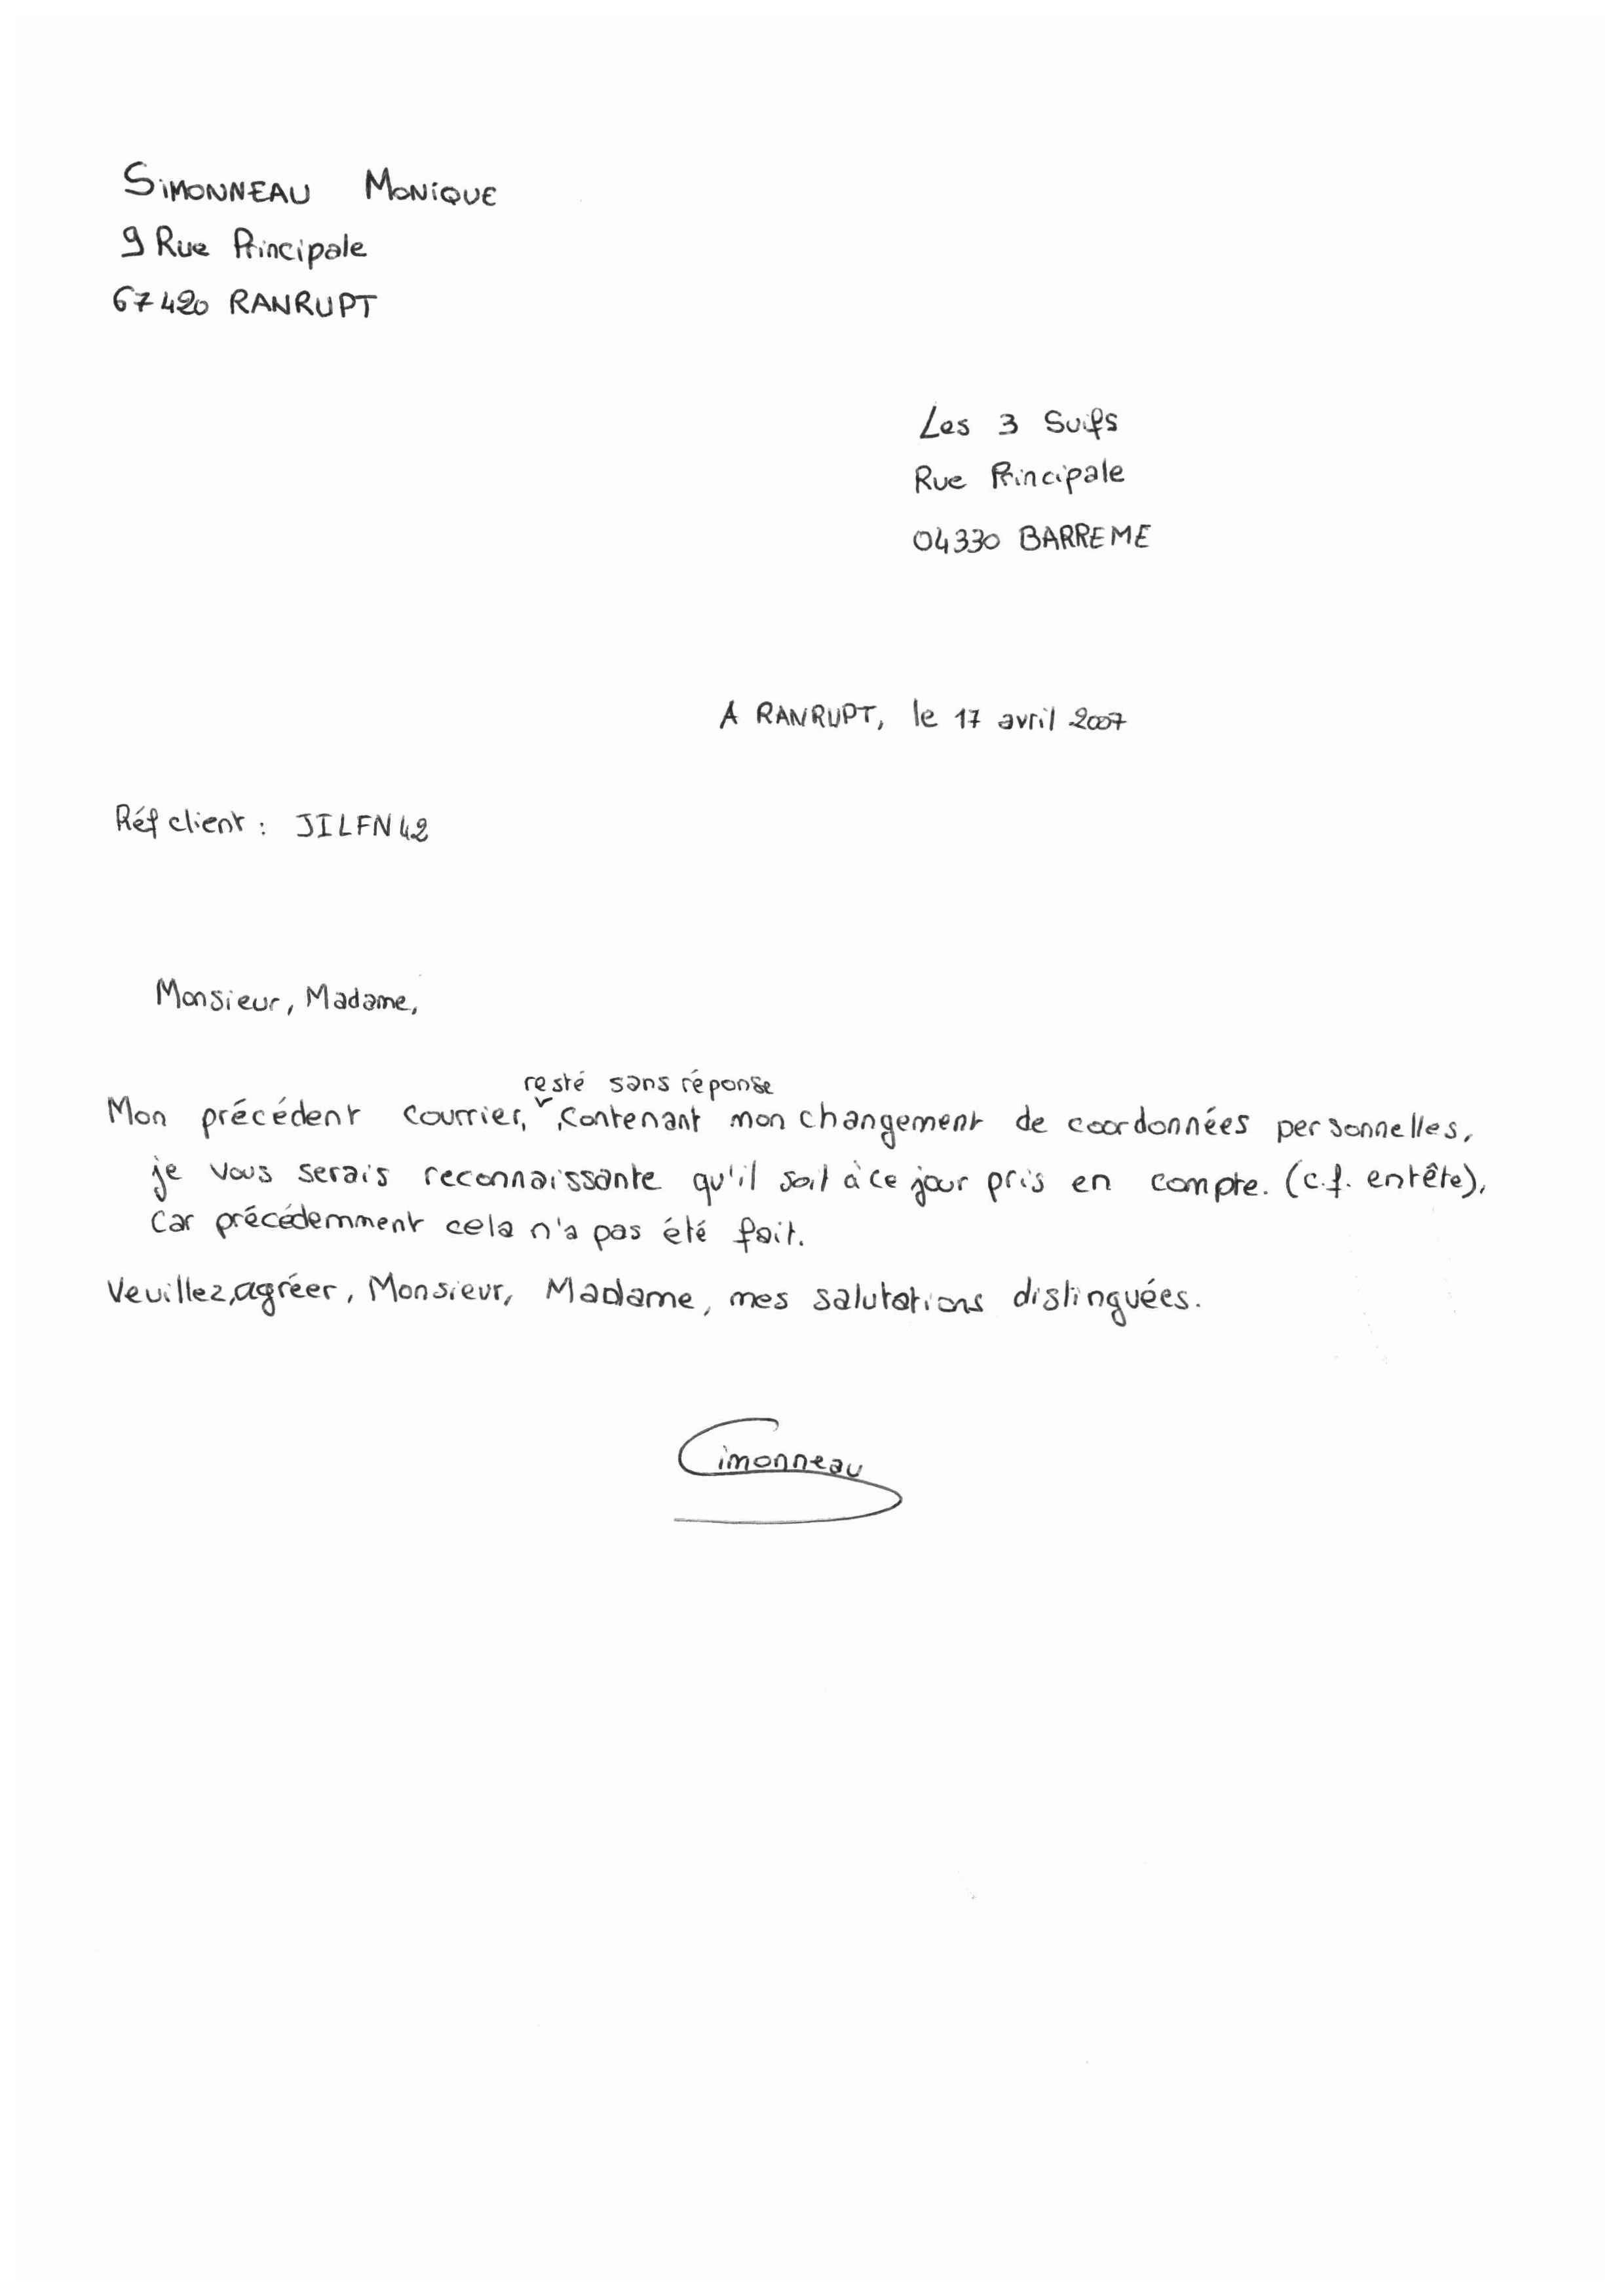 SIMONNEAU MONIQUE
9 Rue Principale
67420 RANRUPT
Les 3 Suifs
Rue Principale
04330 BARREME
A RANRUPT, le 17 avril 2007
Réf client : JILFN42
Monsieur, Madame,
resté sans réponse
Mon précédent courrier, contenant mon changement de coordonnées personnelles,
je vous serais reconnaissante qu'il soit à ce jour pris en compte. (c.f. entête),
car précédemment cela n'a pas été fait.
Veuillez, agréer, Monsieur, Madame, mes salutations distinguées.
Simonneau